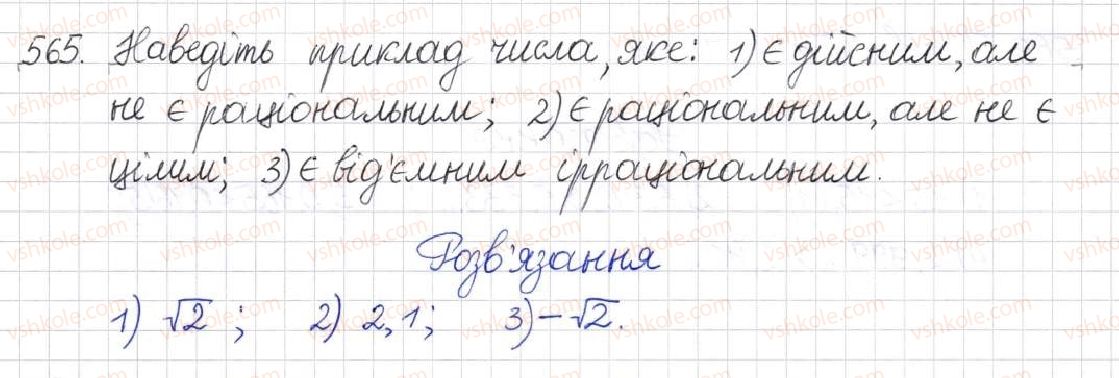 565. Наведіть приклад числа, яке: 1) є дійсним, але
не є раціональним; 2) є раціональним, але не є
цілим; 3) є від'ємним ірраціональним.
Розв'язання
1) √2 ; 2) 2,1; 3) -√2.